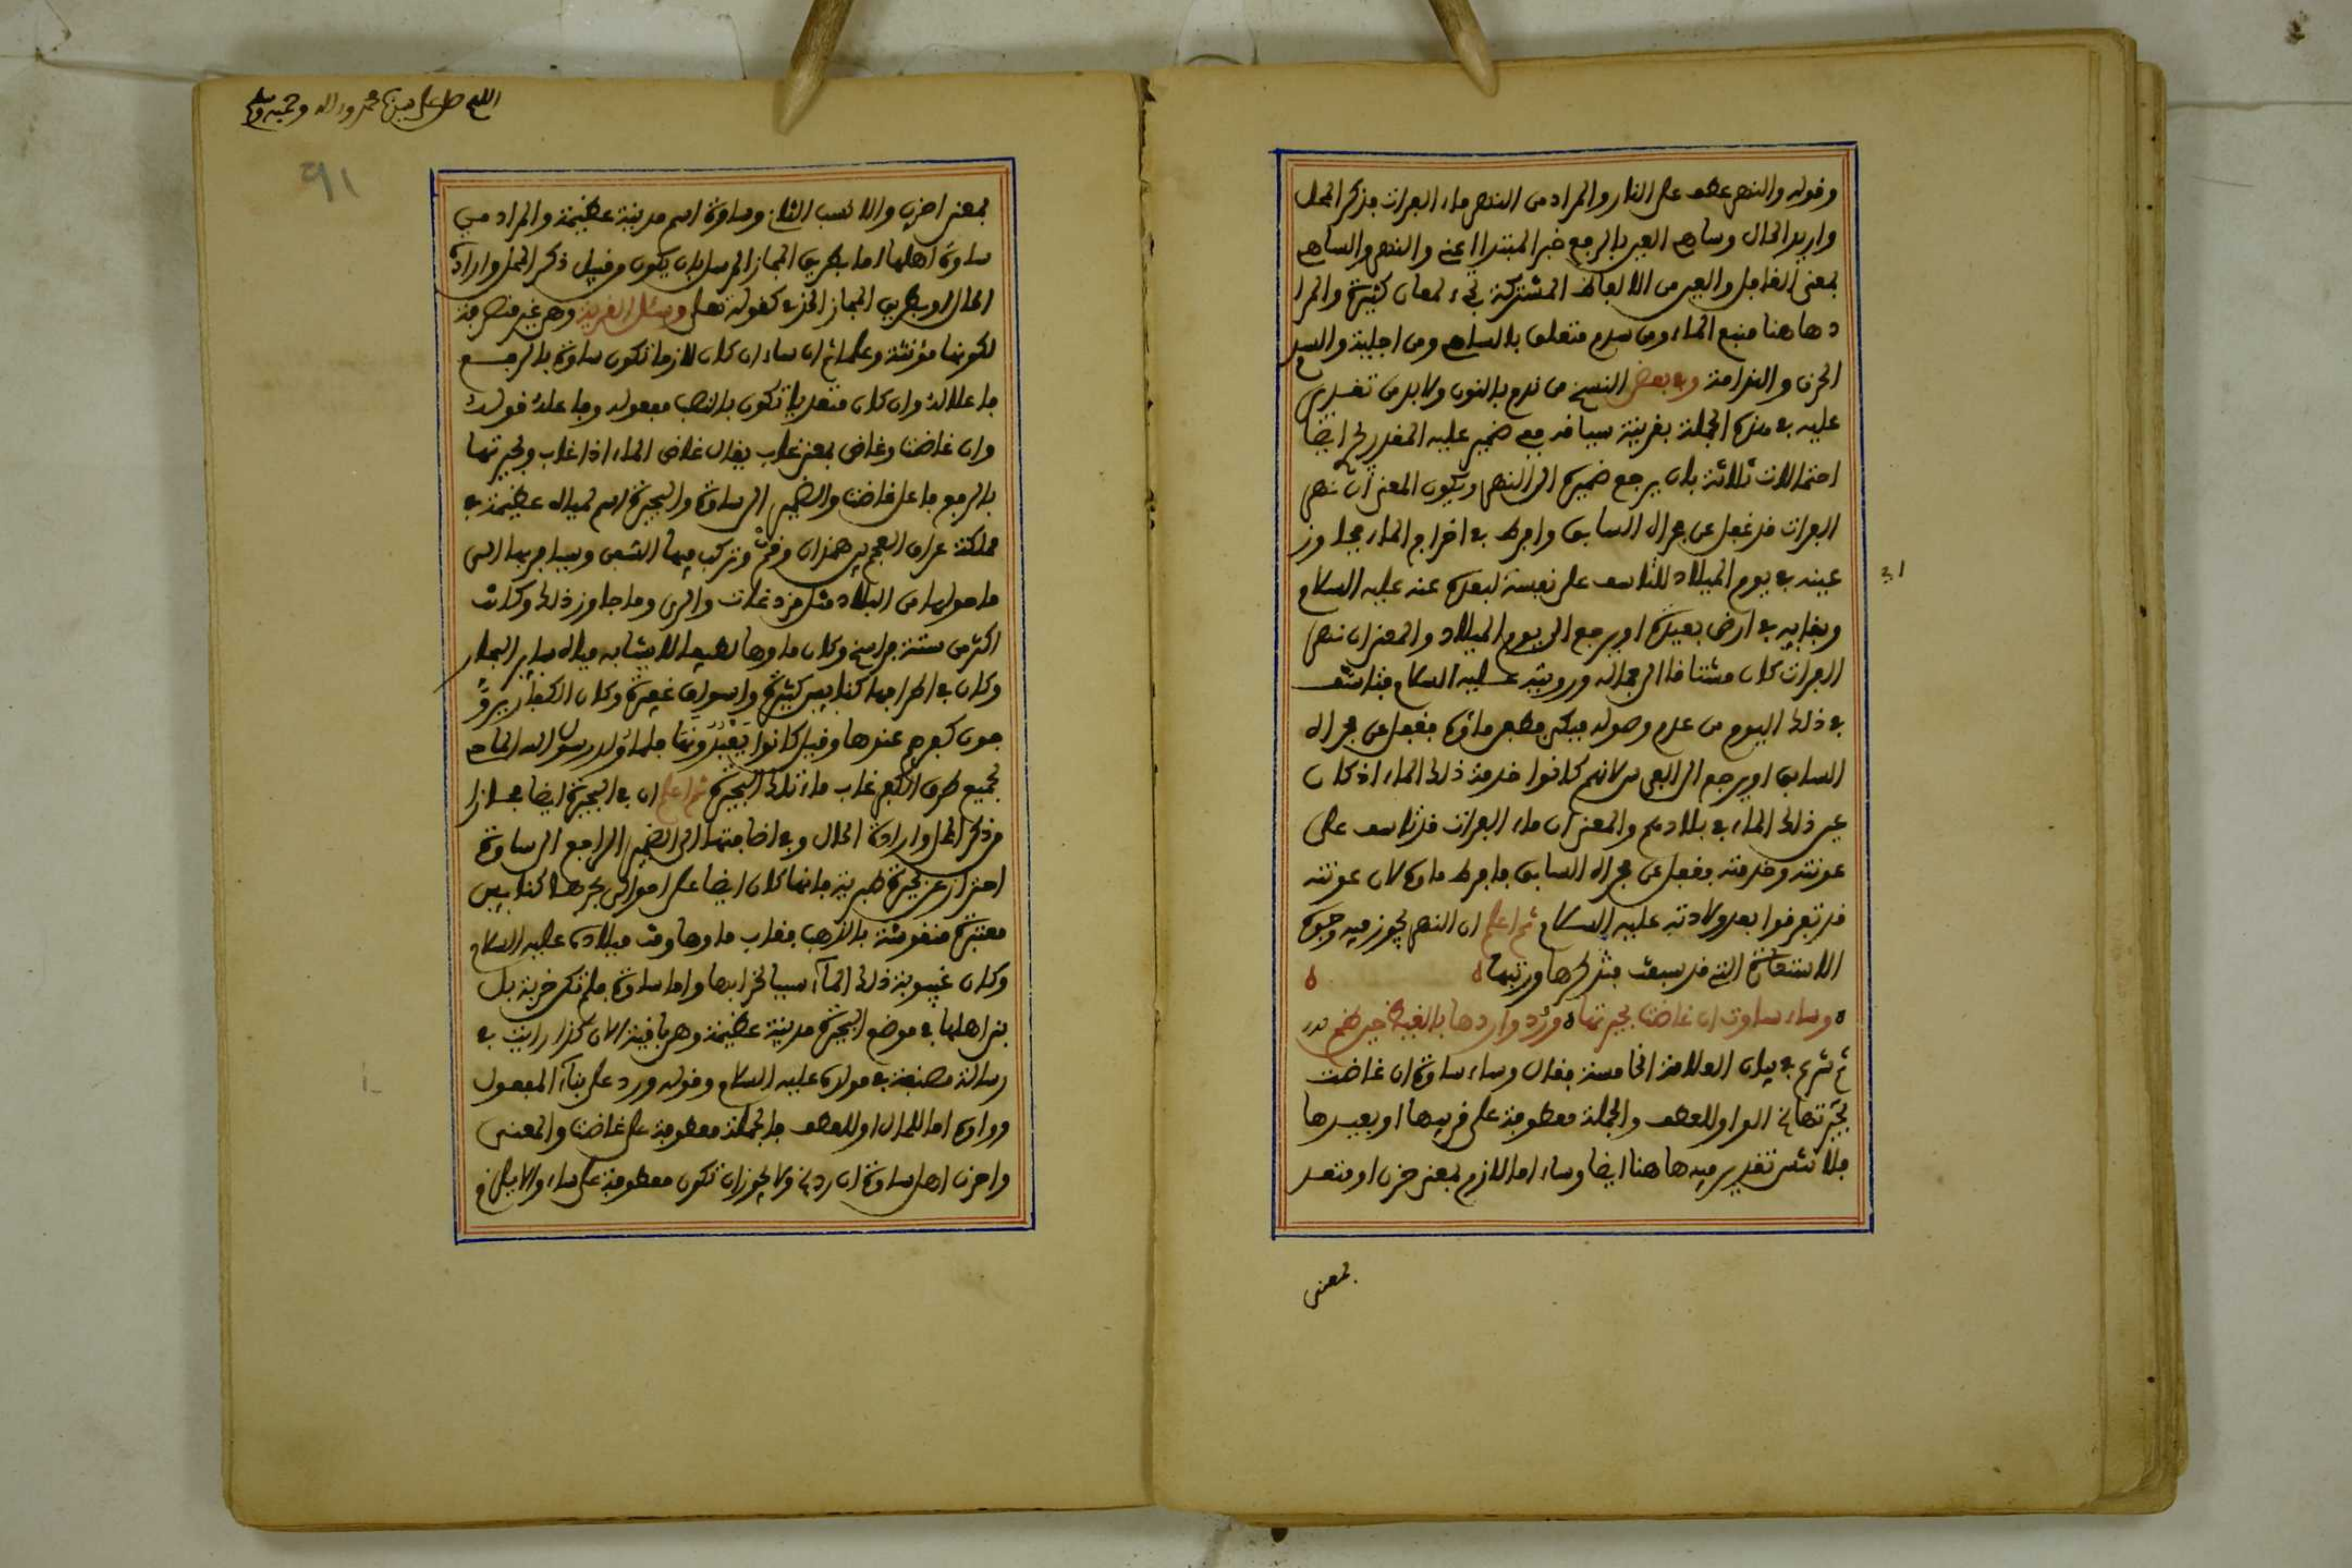 وقوله والنهر عطف على النار والمراد من النهر ماء الفرات فذكر المحل
واريد الحال وساهي العين بالرفع خبر المبتدا اعني والنهر والساهي
بمعنى الغافل والعين من الالفاظ المشتركة تجيء لمعان كثيرة والمرا
د هاهنا منبع الماء ومن سدم متعلق بالساهي ومن اجلية والسدم
الحزن والندامة وفي بعض النسخ من ندم بالنون ولابد من تقدير
عليه في هذه الجملة بقرينة سياقه ففي ضمير عليه المقدر لح ايضا
احتمالات ثلاثة بان يرجع ضميره الى النهر ويكون المعنى ان نهر
الفرات قد غفل عن مجراه السابق وافرط في اخراج الماء فجاوز
عينه في يوم الميلاد للتاسف على نفسه لبعده عنه عليه السلام
وبقايه في ارض بعيدة او يرجع الى يوم الميلاد والمعنى ان نهر
الفرات كان مشتاقا الى جماله ورويته عليه السلام فتاسف
في ذلك اليوم من عدم وصوله فبكى فطفى ماؤه فغفل عن مجراه
السابق او يرجع الى الفرس لانهم كانوا خدمة ذلك الماء اذ كان
عين ذلك الماء في بلادهم والمعنى ان ماء الفرات قد تاسف على
عونته وخدمته فغفل عن مجراه السابق فافرط ماؤه لان عونته
قد تفرقوا بعد ولادته عليه السلام ثم اعلم ان النهر يجوز فيه وجوه
الاستعارة التي قد سبقت فتذكرها ورتبها ه ه
ه وساء ساوة ان غاضت بحيرتها ه ورد واردها بالغيظ حين ظمي
ثم شرع في بيان العلامة الخامسة فقال وساء ساوة ان غاضت
بحيرتها الخ الواو للعطف والجملة معطوفة على قريبها او بعيدها
فلا تنس تقدير فيه هاهنا ايضا وساء اما لازم بمعنى حزن او متعد
بمعنى
اللهم صل على سيدنا محمد وءاله وصحبه وسلم
91
بمعنى احزن والانسب الثاني وساوة اسم مدينة عظيمة والمراد من
ساوة اهلها اما بطريق المجاز المرسل بان يكون من قبيل ذكر المحل وارادة
الحال او بطريق المجاز الحذفي كقوله تعلى وسئل القرية وهي غير منصرفة
لكونها مؤنثة وعلما ثم ان ساء ان كان لازما تكون ساوة بالرفع
فاعلا له وان كان متعديا تكون بالنصب مفعوله وفاعله قوله
وان غاضت وغاض بمعنى غاب يقال غاض الماء اذا غاب وبحيرتها
بالرفع فاعل غاضت والضمير الى ساوة والبحيرة اسم لمياه عظيمة في
مملكة عراق العجم بين همذان وقم وتركب فيها السفن ويسافر بها الى
ما حولها من البلاد مثل فرغانة والري وما جاوز ذلك وكانت
اكثر من ستة فراسخ وكان ماؤها لطيفا لا يشابه مياه ساير البحار
وكان في اطرافها كنايس كثيرة واسواق غفيرة وكان الكفار يروّ
جون كفرهم عندها وقيل كانوا يَعْبُدُونَهَا فلما وُلد رسول الله الماحي
لجميع طرق الكفر غاب ماء تلك البحيرة ثم اعلم ان في البحيرة ايضا مجازا
من ذكر المحل وارادة الحال وفي اضافتها الى الضمير الراجع الى ساوة
احتراز عن بحيرة طبرية فانها كان ايضا على احوالي بحرها كنايس
معتبرة منقوشة بالذهب فغاب ماؤها وقت ميلاده عليه السلام
وكان غيبوبة ذلك الماء سببا لخرابها واما ساوة فلم تكن خربة بل
بنى اهلها في موضع البحيرة مدينة عظيمة وهي باقية الان كذا رايت في
رسالة مصنفة في مولده عليه السلام وقوله ورد على بناء المفعول
وواوه اما للحال او للعطف فالجملة معطوفة على غاضت والمعنى
واحزن اهل ساوة ان رد الخ ولا يجوز ان تكون معطوفة على ساء والا يلزم